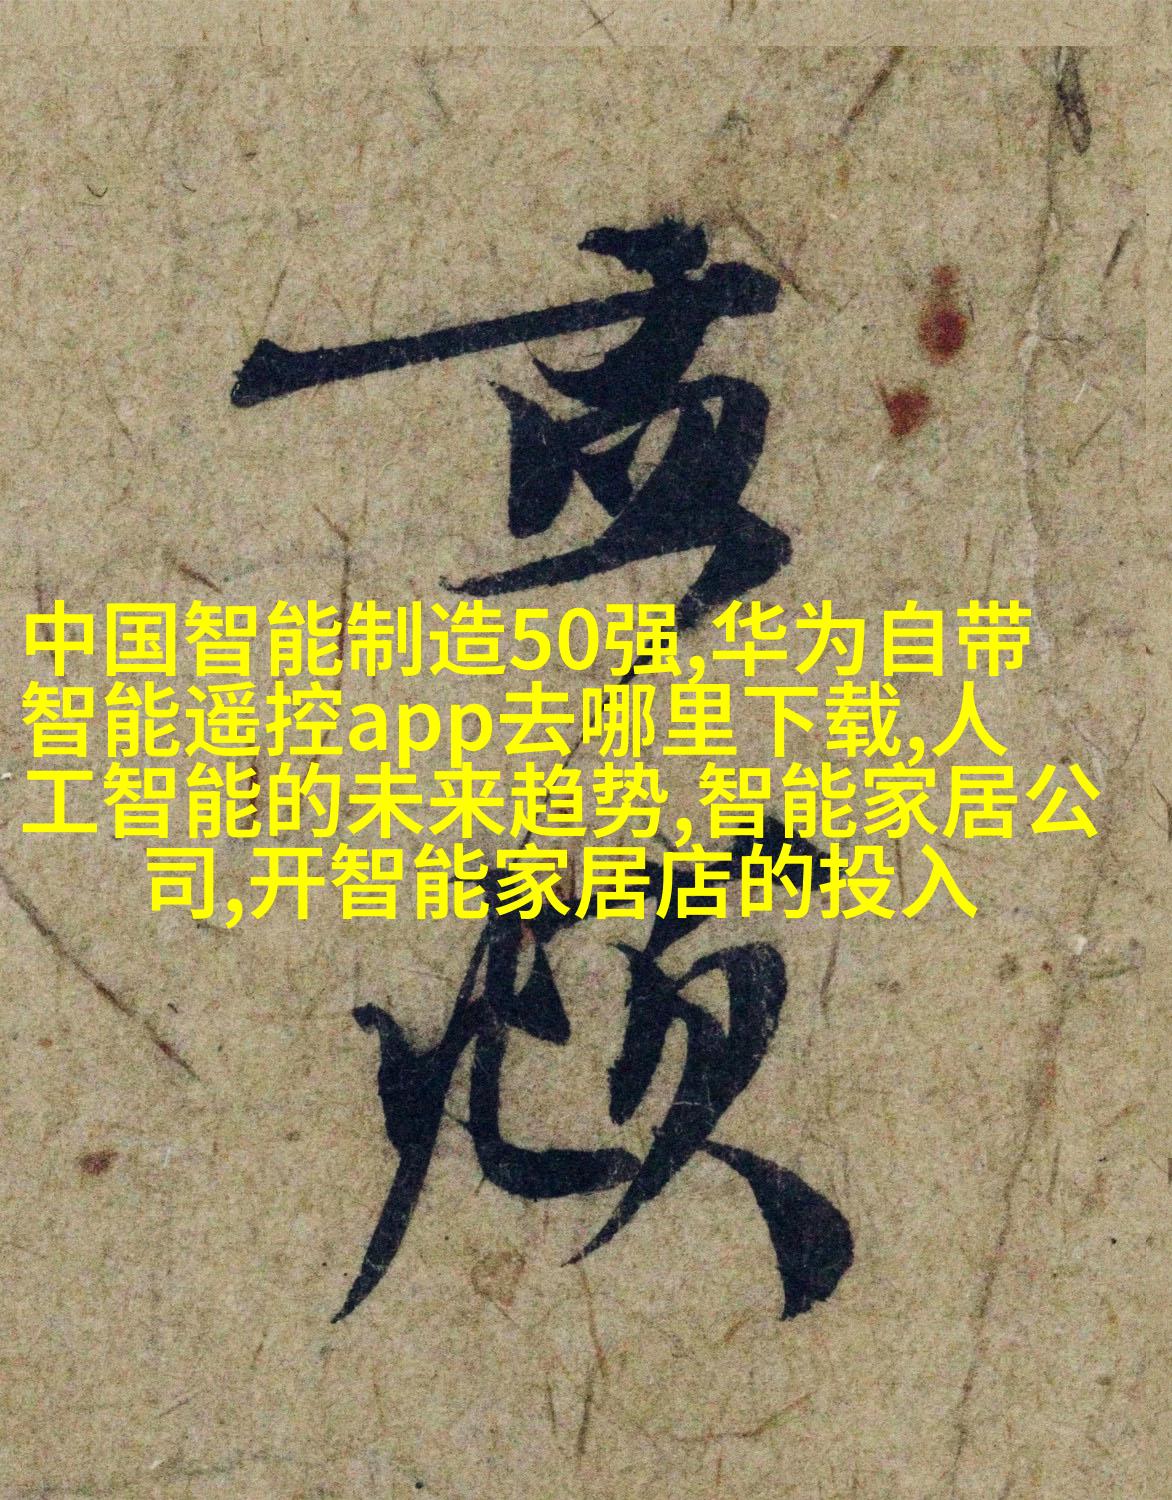 中国智能制造50强,华为自带
智能遥控app去哪里下载,人
工智能的未来趋势,智能家居公
司,开智能家居店的投入